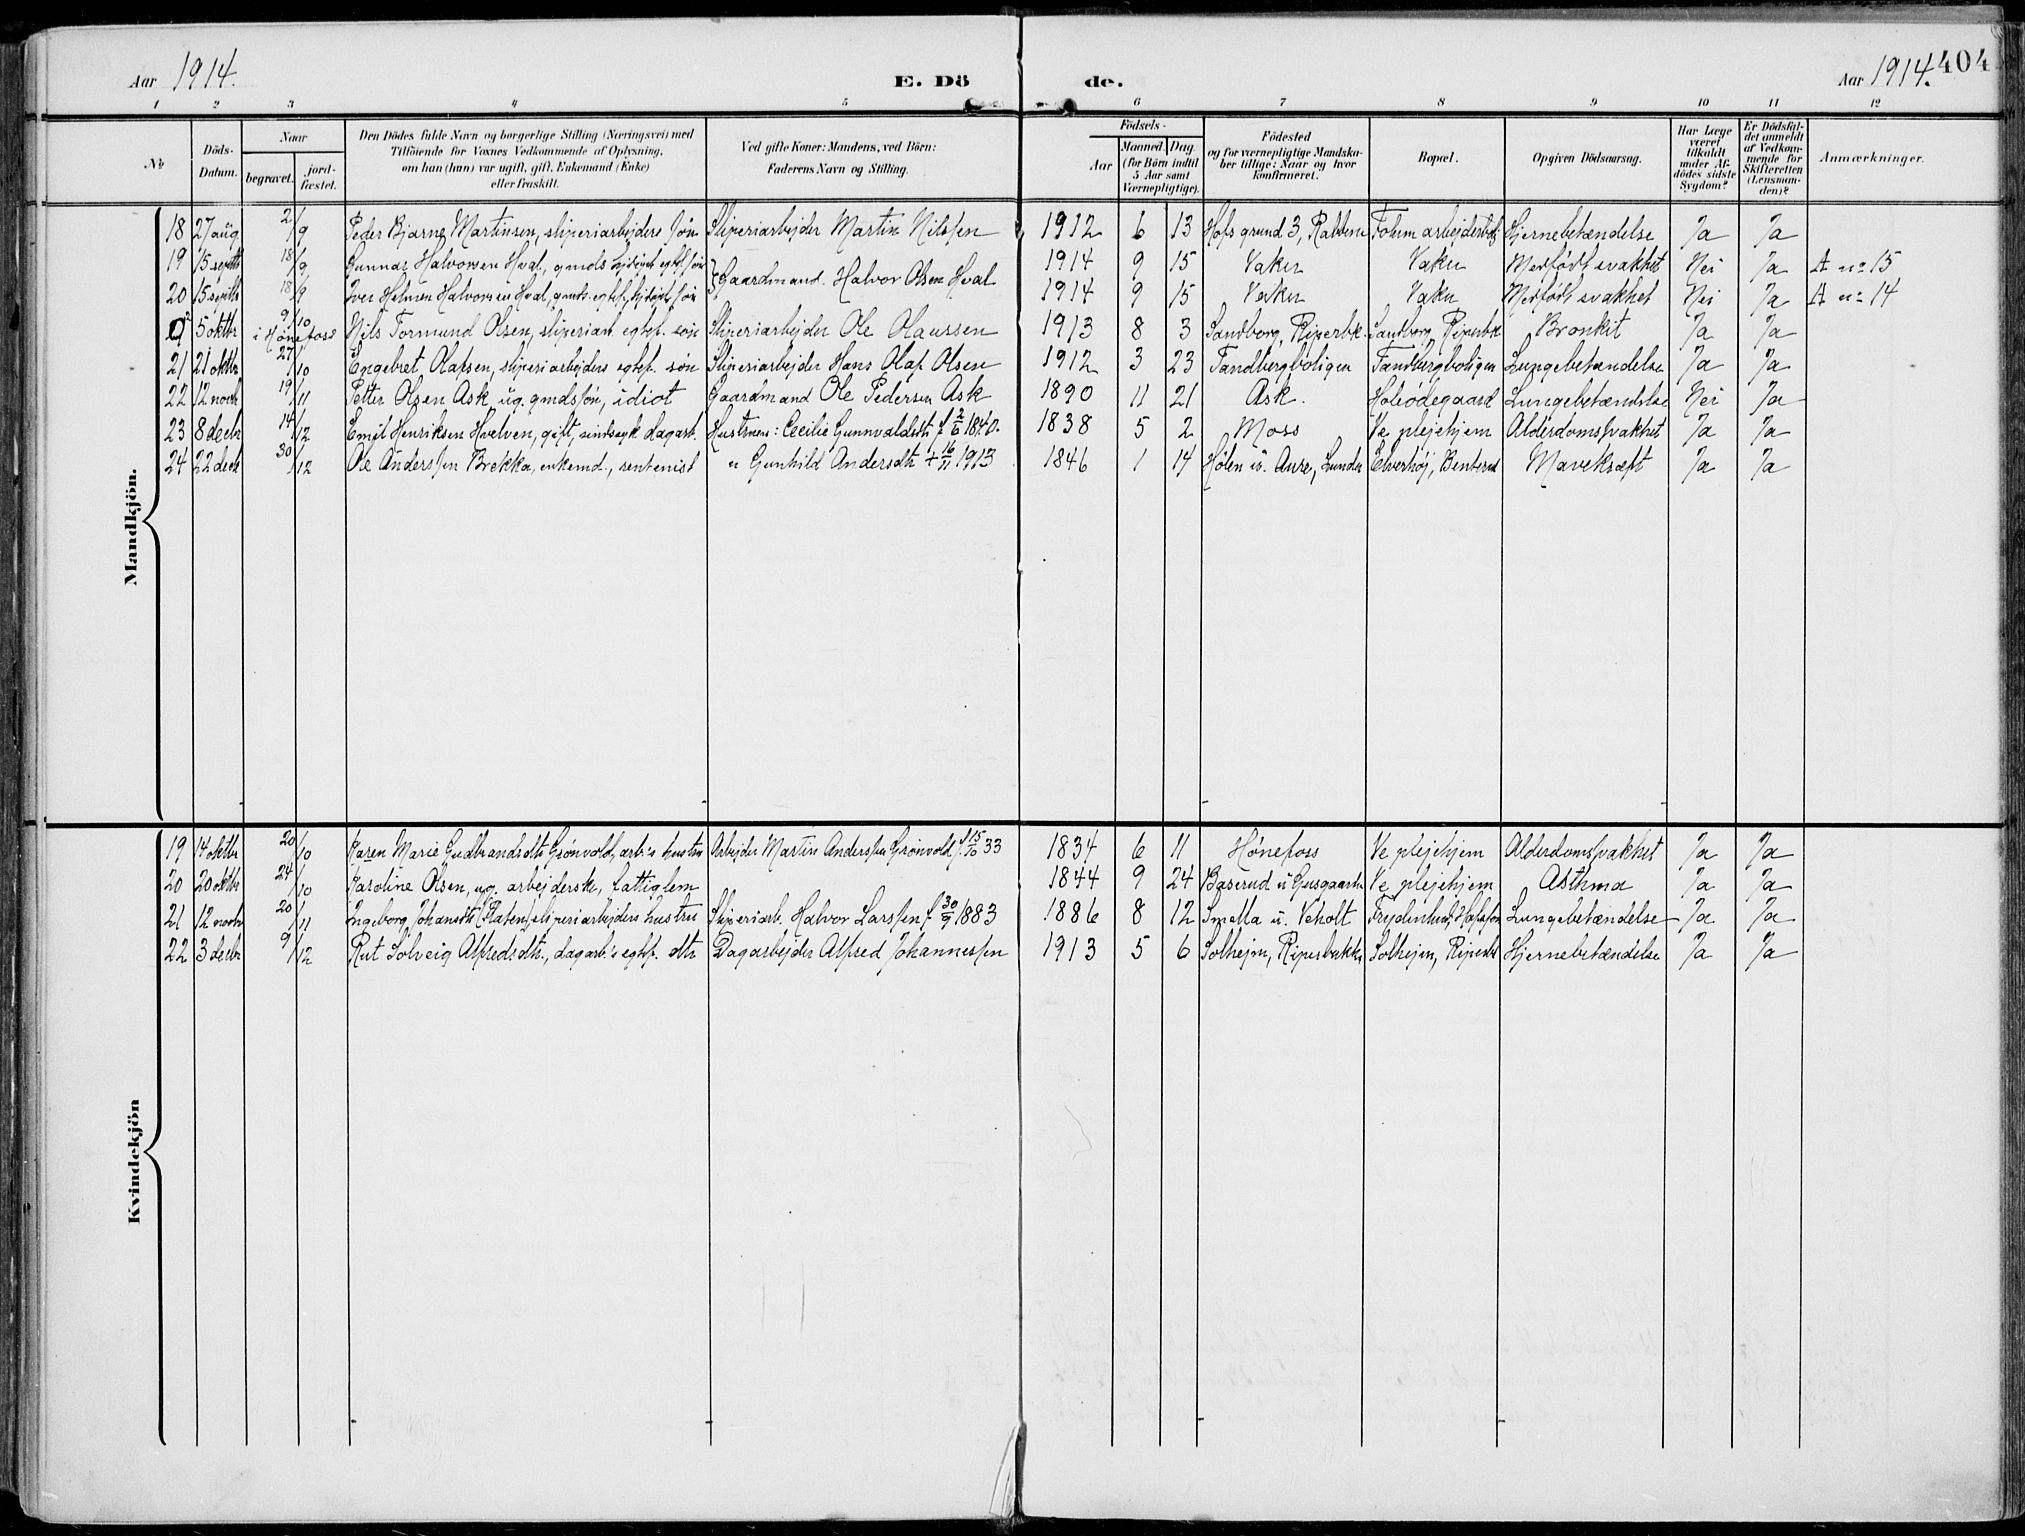 Aar 1914. E. Dö de. Aar 1914. 404
1 2 3 4 5 6 7 8 9 10 11 12
No
Döds-Datum.
Naar
begravet.
jord-fæstet.
Den Dödes fulde Navn og borgerlige Stilling (Næringsvei) med
Tilföiende for Voxnes Vedkommende af Oplysning,
om han (hun) var ugift, gift, Enkemand (Enke)
eller fraskilt.
Ved gifte Koner: Mandens, ved Börn:
Faderens Navn og Stilling.
Födsels-
Aar
Maaned. Dag.
(for Börn indtil
5 Aar samt
Værnepligtige).
Födested
og for værnepligtige Mandska-
ber tillige: Naar og hvor
konfirmeret.
Bopæl.
Opgiven Dödsaarsag.
Har Læge
været
tilkaldt
under Af-
dödes sidste
Sygdom?
Er Dödsfal-
det anmeldt
af Vedkom-
mende for
Skifteretten
(Lensman-
den)?
Anmærkninger.
Mandkjön.
18 27 aug 2/9 Peder Bjarne Martinsen, sliperiarbejders søn Sliperiarbejder Martin Nilssen 1912 6 13 Hofs grund 3, Hjernebetændelse Ja Ja
19 15 septb 18/9 Gunnar Halvorsen Hval, gmds Gaardmand Halvor Olsen Hval 1914 9 15 Vaker Vaker Medfødt svakhet Nei Ja A no 15
20 15 septb 18/9 Iver Helmen Halvorsen Hval, gmds. 1914 9 15 Vaker Vaker Medfødt svakhet Nei Ja A no 14
5 oktbr 9/10 i Hønefoss Nils Tormund Olsen, sliperiarb. egtef. søn Sliperiarbejder Ole Olaussen 1913 8 3 Sandborg, Riperbk. Sandborg, Riperbk Bronkit Ja Ja
21 21 oktbr 27/10 Engebret Olafsen, sliperiarbejders egtef. søn Sliperiarbejder Hans Olaf Olsen 1912 3 23 Tandbergboligen Tandbergboligen Lungebetændelse Ja Ja
22 12 novb 19/11 Petter Olsen Ask, ug. gmdssøn, idiot Gaardmand Ole Pedersen Ask 1890 11 21 Ask. Lungebetændelse Nei Ja
23 8 decb 14/12 Emil Henriksen Hvelven, gift, sindssyk dagarb. Hustruens: Cecilie Gunnvaldsdtr f. 2/6 1840. 1838 5 2 Moss Ve plejehjem Alderdomssvakhet Ja Ja
24 22 decb 30/12 Ole Anderssen Brekka, enkemd., rentenist " Gunhild Andersdtr + 16/11 1913 1846 1 14 Hølen u. Aure, Lunder Elverhøj, Benterud Mavekræft Ja Ja
Kvindekjön
19 14 oktbr 20/10 Karen Marie Gudbrandsdtr Grønvold, arb.s hustru Arbejder Martin Anderssen Grønvold f. 15/10 33 1834 6 11 Hønefoss Ve plejehjem Alderdomssvakhet Ja Ja
20 20 oktbr 24/10 Karoline Olsen, ug. arbejderske, fattiglem 1844 9 24 Baserud u Ve plejehjem Asthma Ja Ja
21 12 novb 20/11 Ingeborg Johansdtr sliperiarbejders hustru Sliperiarb. Halvor Larssen f. 30/9 1883 1886 8 12 Smetta u. Veholt Frydenlund, Lungebetændelse Ja Ja
22 3 decbr 9/12 Rut Solveig Alfredsdtr., dagarb.s egtef. dtr Dagarbejder Alfred Johannessen 1913 5 6 Solhejm, Riperbakken Solhejm, Riperbk Hjernebetændelse Ja Ja